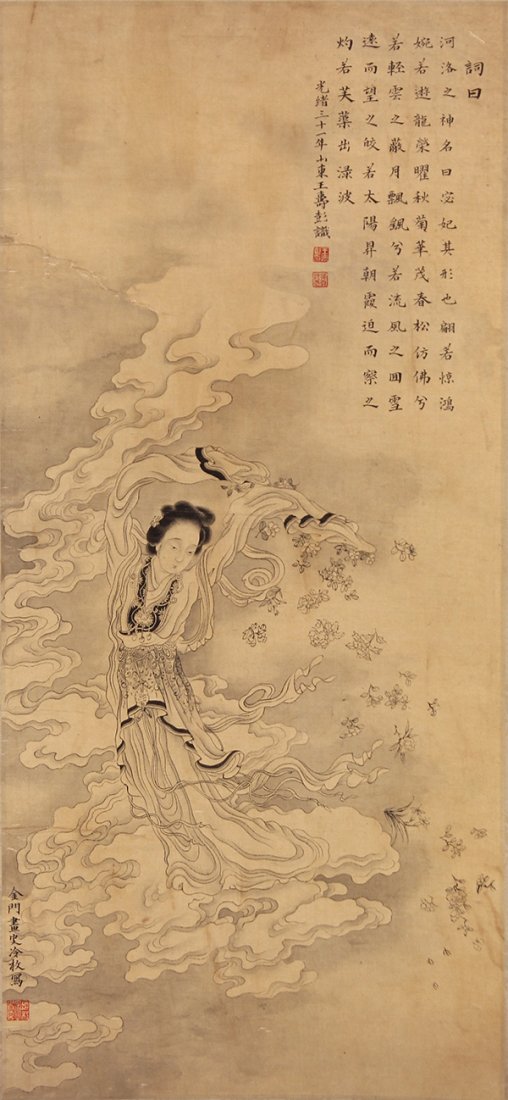 詞曰
河洛之神名曰宓妃其形也翩若惊鴻
婉若遊龍榮曜秋菊華茂春松仿佛兮
若輕雲之蔽月飄飖兮若流風之回雪
遠而望之皎若太陽昇朝霞迫而察之
灼若芙蕖出淥波
光緒三十一年山東王壽彭識
金門畫史冷枚寫